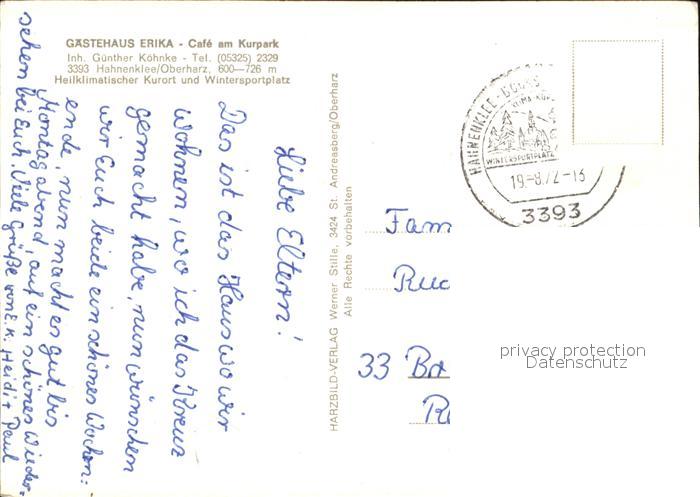 GÄSTEHAUS ERIKA - Café am Kurpark
Inh. Günther Köhnke - Tel. (05325) 2329
3393 Hahnenklee/Oberharz, 600—726 m
Heilklimatischer Kurort und Wintersportplatz
Liebe Eltern!
Das ist das Haus wo wir
wohnen, wo ich das Kreuz
gemacht habe, nun wünschen
wir Euch beide ein schönes Wochen=
ende, nun macht es gut bis
Montagabend, auf ein schönes Wieder=
sehen bei Euch. Viele Grüße von E. K. Heidi + Paul
HARZBILD-VERLAG Werner Stille, 3424 St. Andreasberg/Oberharz
Alle Rechte vorbehalten
HAHNENKLEE-BOCKS
KLIMA-KUR
WINTERSPORTPLATZ
19.-8.72-13
3393
Fam
33
privacy protection
Datenschutz